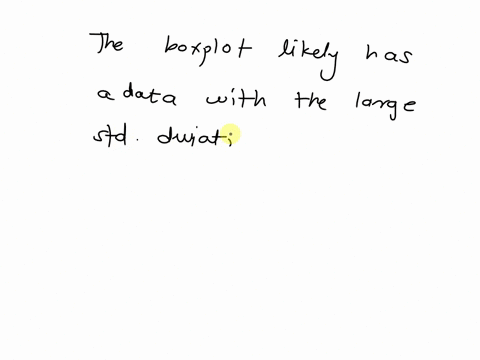 The boxplot likely has
a data with the large
std. dwiati